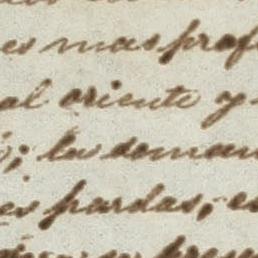 es mas prof
al oriente y
; la deman
es pardas, es